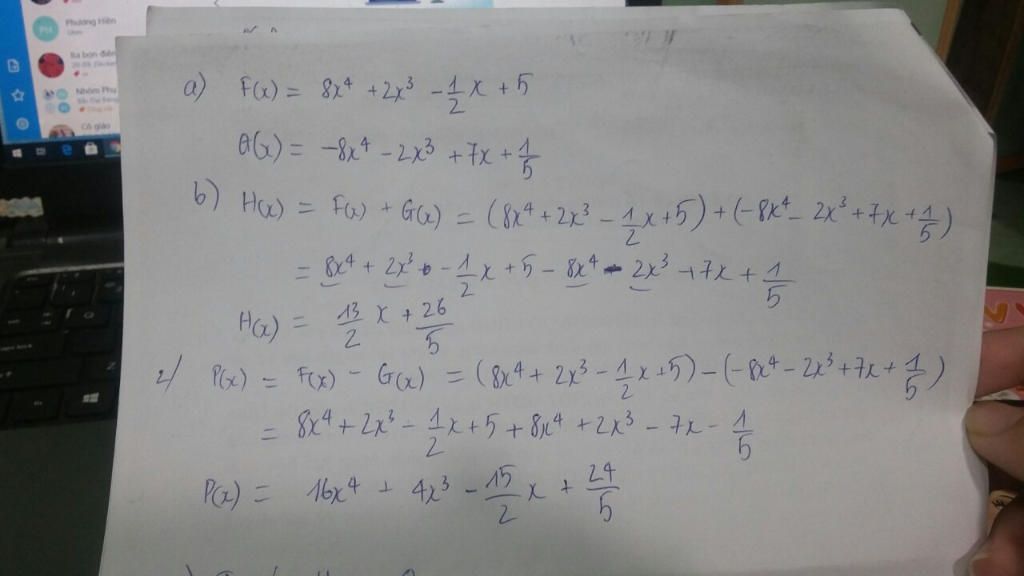 PH
Phương Hiền
Ba bọn điên
Nhóm Phu
Cô giáo
a) F(x) = 8x⁴ + 2x³ - 1/2 x + 5
G(x) = -8x⁴ - 2x³ + 7x + 1/5
b) H(x) = F(x) + G(x) = (8x⁴ + 2x³ - 1/2 x + 5) + (-8x⁴ - 2x³ + 7x + 1/5)
= 8x⁴ + 2x³ - 1/2 x + 5 - 8x⁴ - 2x³ + 7x + 1/5
H(x) = 13/2 x + 26/5
c/ P(x) = F(x) - G(x) = (8x⁴ + 2x³ - 1/2 x + 5) - (-8x⁴ - 2x³ + 7x + 1/5)
= 8x⁴ + 2x³ - 1/2 x + 5 + 8x⁴ + 2x³ - 7x - 1/5
P(x) = 16x⁴ + 4x³ - 15/2 x + 24/5